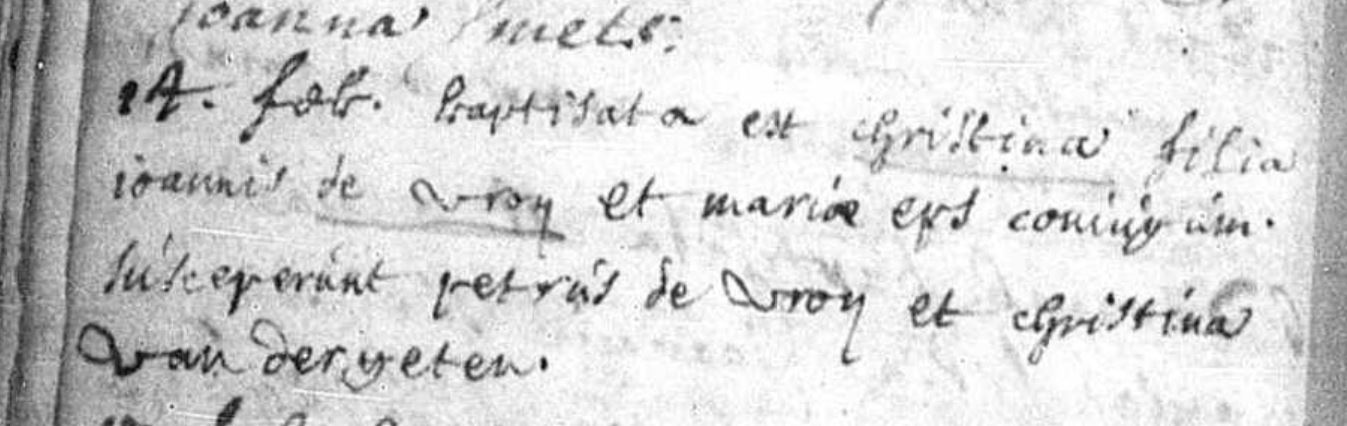 Joanna Smets.
14. feb. baptisata est Christina filia
ioannis de vroy et mariæ eps coniugum.
susceperunt petrus de vroy et christina
van der yeten.